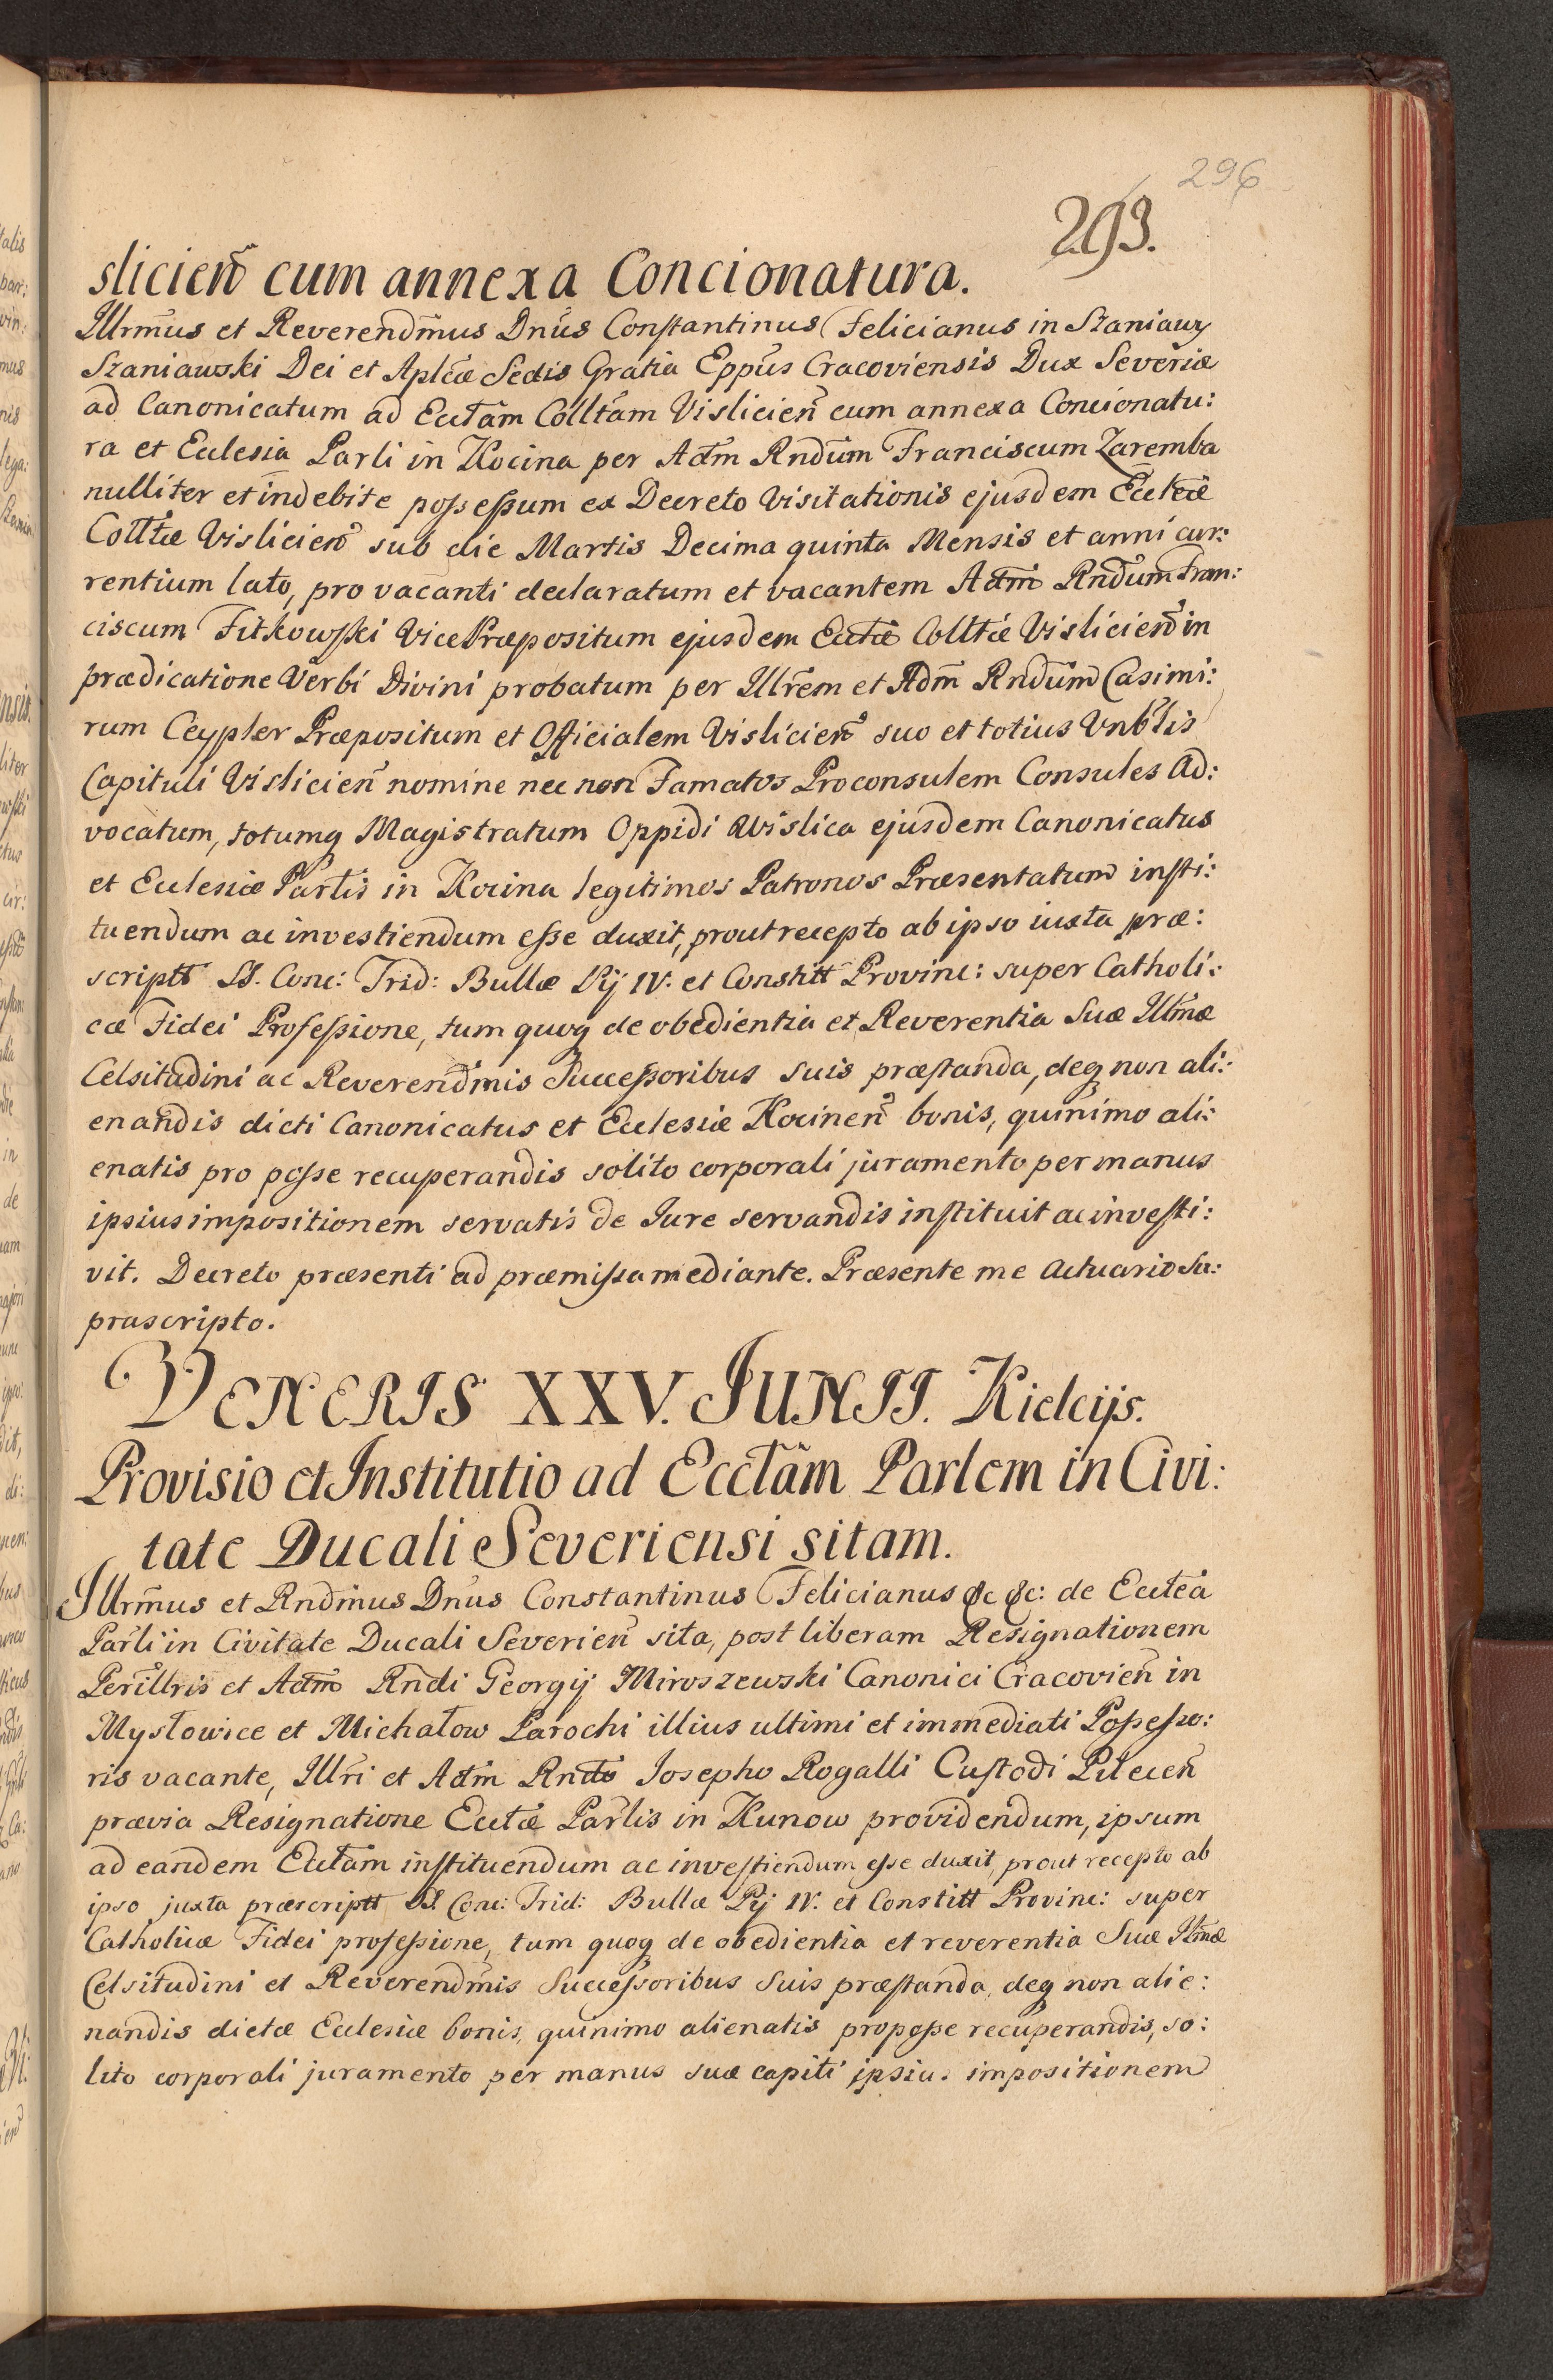 296
293.
slicien̄ cum annexa Concionatura.
Illrm̄us et Reverendm̄us Dnūs Constantinus Felicianus in Szaniawy
Szaniawski Dei et Aplcæ Sedis Gratia Eppūs Cracoviensis Dux Severiæ
ad Canonicatum ad Ecctām Colltām Vislicien̄ cum annexa Concionatu:
ra et Ecclesia Parli in Kocina per Adm̄ Rndūm Franciscum Zaremba
nulliter et indebite possessum ex Decreto Visitationis ejusdem Ecctæ
Colltæ Vislicien̄ sub die Martis Decima quinta Mensis et anni cur:
rentium lato, pro vacanti declaratum et vacantem Adm̄ Rndūm Fran:
ciscum Fitkowski VicePræpositum ejusdem Ecctæ Colltæ Vislicien̄ in
prædicatione Verbi Divini probatum per Illrem et Adm̄ Rndūm Casimi:
rum Ceypler Præpositum et Officialem Vislicien̄ suo et totius Vnblis
Capituli Vislicien̄ nomine nec non Famatos Proconsulem Consules Ad:
vocatum, totumq Magistratum Oppidi Wislica ejusdem Canonicatus
et Ecclesiæ Parlis in Kocina legitimos Patronos Præsentatum insti:
tuendum ac investiendum esse duxit, prout recepto ab ipso iuxta præ:
scriptt SS. Conc: Trid: Bullæ Pij IV. et Constitt Provinc: super Catholi:
cæ Fidei Professione, tum quoq de obedientia et Reverentia Suæ Illmæ
Celsitudini ac Reverendm̄is Successoribus suis præstanda, deq non ali:
enandis dicti Canonicatus et Ecclesiæ Kocinen̄ bonis, quinimo ali:
enatis pro posse recuperandis solito corporali juramento per manus
ipsius impositionem servatis de Jure servandis instituit ac investi:
vit. Decreto præsenti ad præmissa mediante. Præsente me Actuario Su:
prascripto.
VENERIS XXV. JUNII. Kielcijs.
Provisio et Institutio ad Ecctām Parlem in Civi:
tate Ducali Severiensi sitam.
Illrm̄us et Rndm̄us Dnūs Constantinus Felicianus &c &c: de Ecctea
Parli in Civitate Ducali Severien̄ sita, post liberam Resignationem
Perillris et Adm̄ Rndi Georgij Miroszewski Canonici Cracovien̄ in
Mysłowice et Michałow Parochi illius ultimi et immediati Possesso:
ris vacante, Illri et Adm̄ Rndo Josepho Rogalli Custodi Pilecen̄
prævia Resignatione Ecctæ Parlis in Kunow providendum, ipsum
ad eandem Ecctām instituendum ac investiendum esse duxit, prout recepto ab
ipso juxta præscriptt SS. Conc: Trid: Bullæ Pij IV. et Constitt Provinc: super
Catholicæ Fidei professione, tum quoq de obedientia et reverentia Suæ Illmæ
Celsitudini et Reverendm̄is Successoribus Suis præstanda, deq non alie:
nandis dictæ Ecclesiæ bonis, quinimo alienatis pro posse recuperandis, so:
lito corporali juramento per manus suæ capiti ipsius impositionem